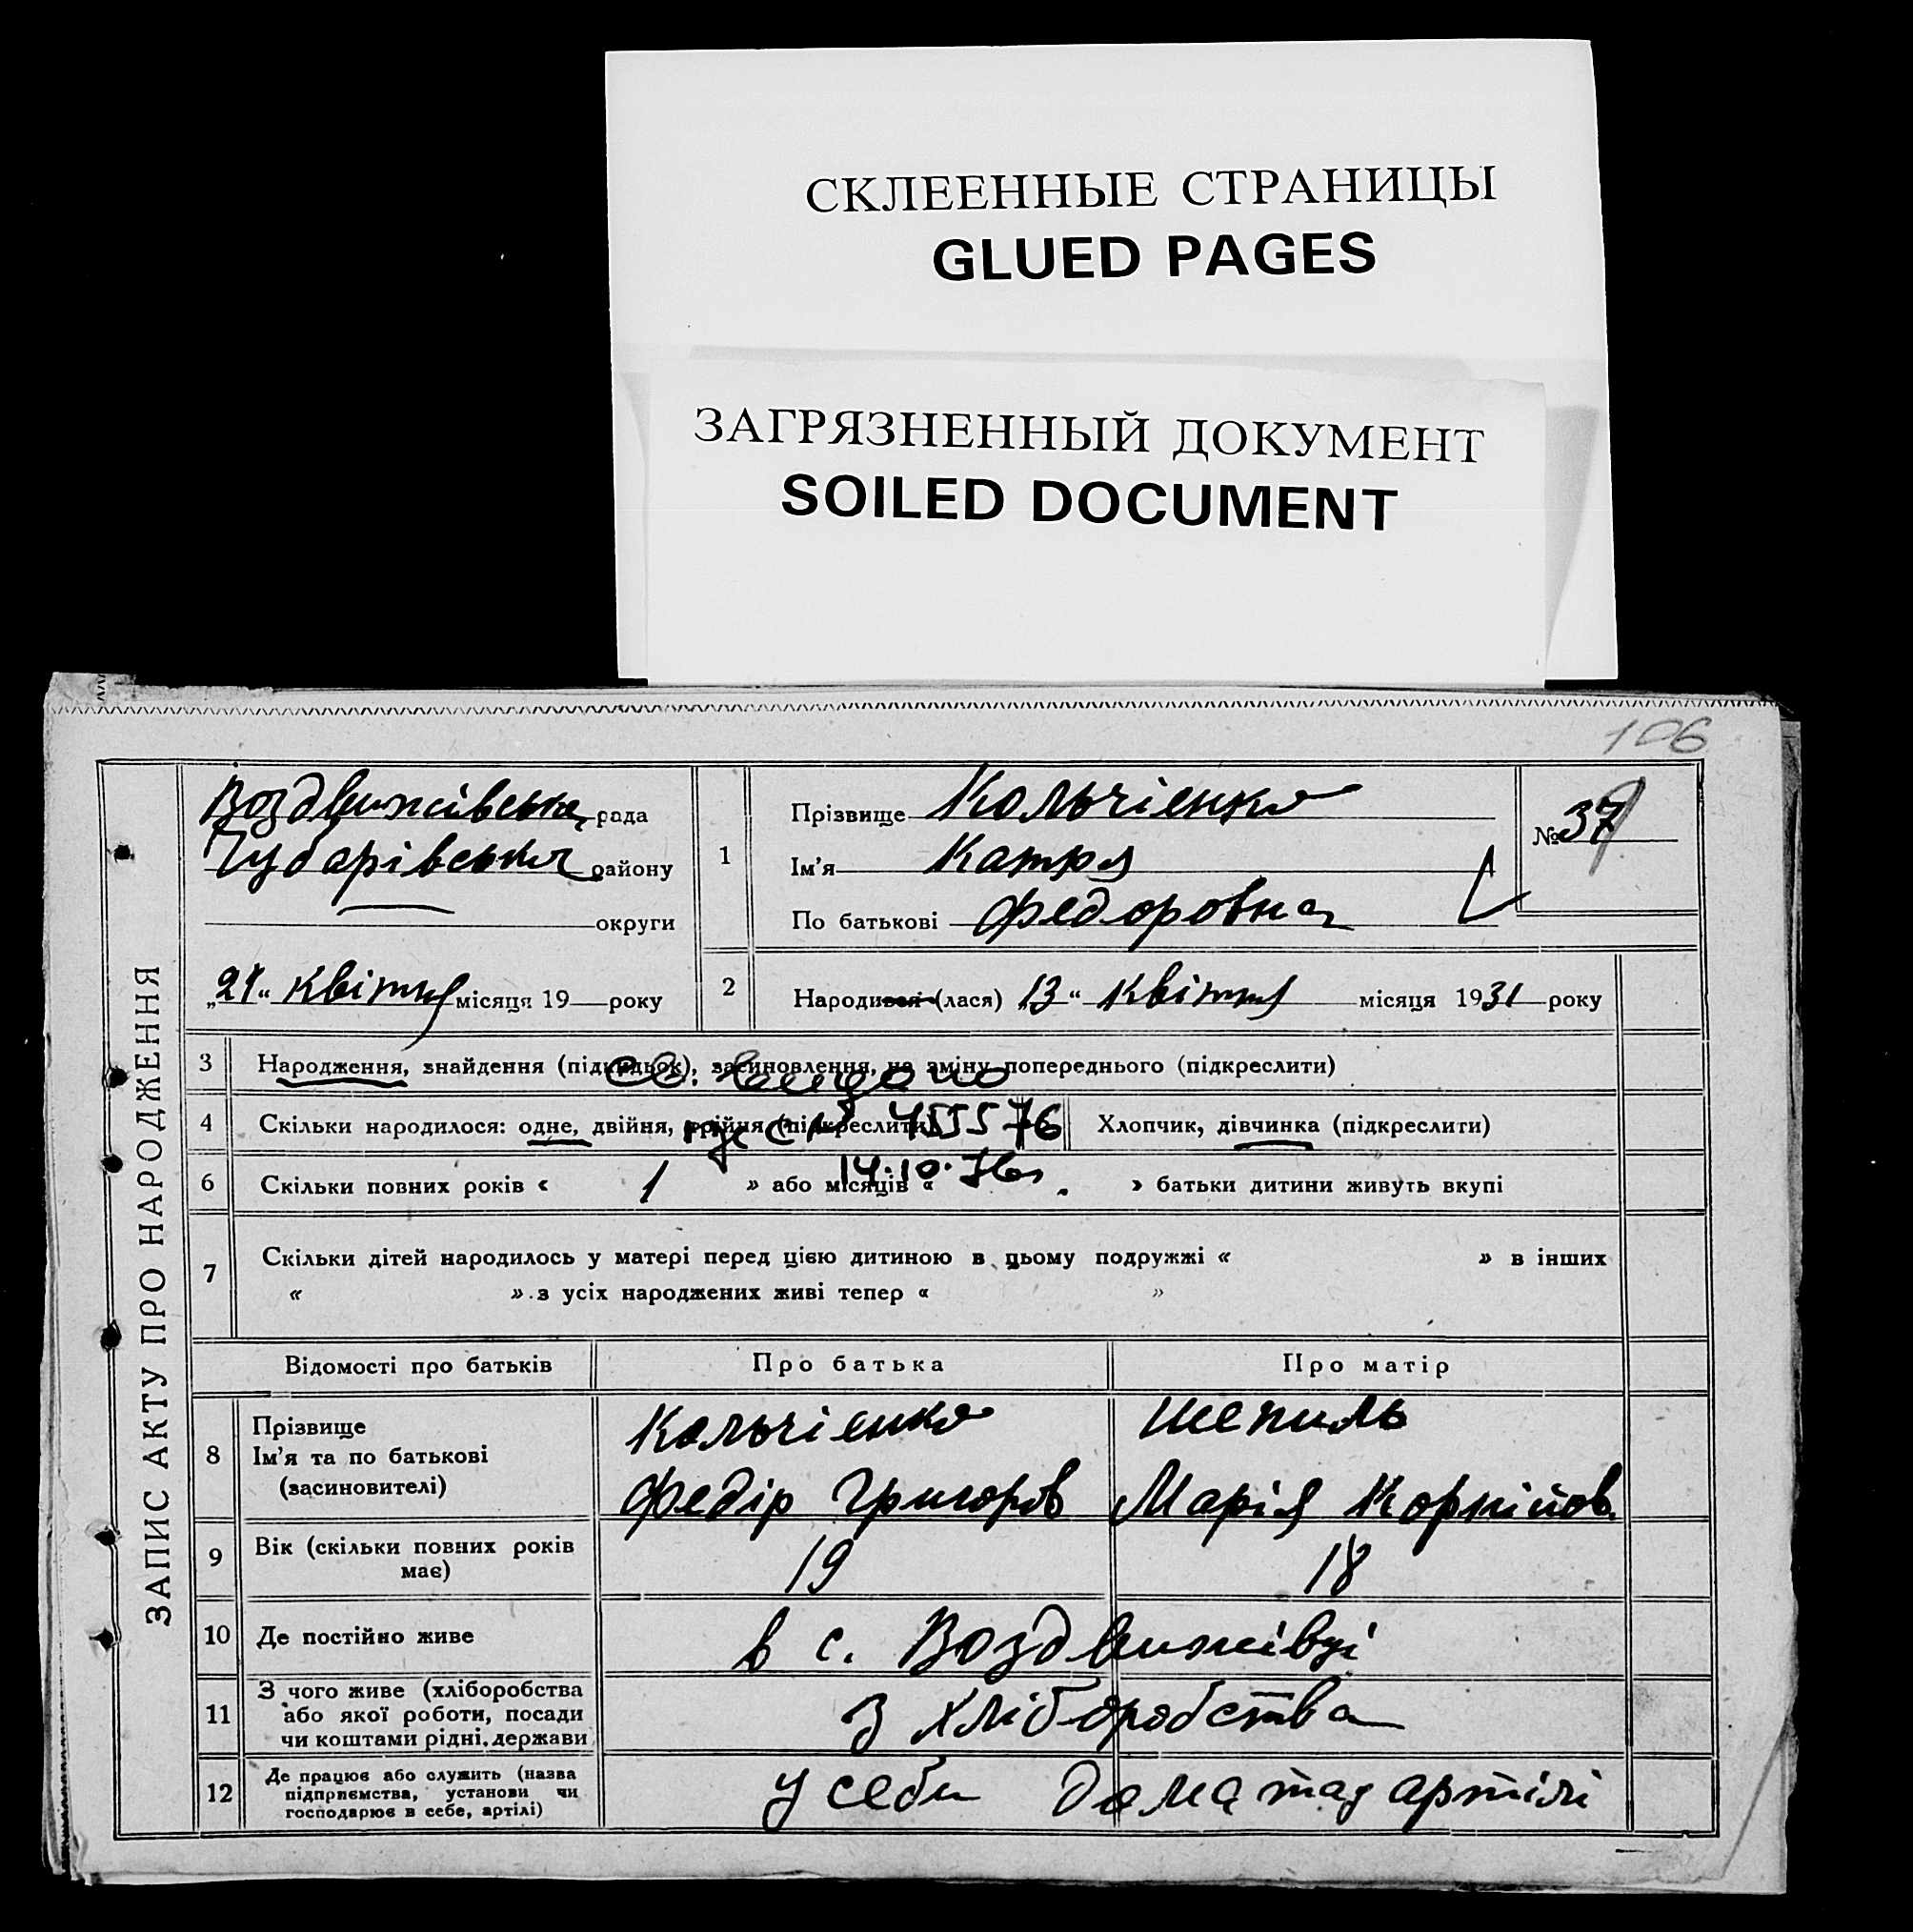 СКЛЕЕННЫЕ СТРАНИЦЫ
GLUED PAGES
ЗАГРЯЗНЕННЫЙ ДОКУМЕНТ
SOILED DOCUMENT
106
ЗАПИС АКТУ ПРО НАРОДЖЕННЯ
Воздвижівська рада
Чубарівська району
округи
„21“ квітня місяця 19 року
1
Прізвище Кольчієнко
Ім’я Катря
По батькові Федоровна
№ 37
2
Народився (лася) 13 “ квітня місяця 1931 року
3 Народження, знайдення (підкидьок), засиновлення, на зміну попереднього (підкреслити)
4 Скільки народилося: одне, двійня, трійня (підкреслити) Хлопчик, дівчинка (підкреслити)
455576
14.10.76
6 Скільки повних років « 1 » або місяців « » батьки дитини живуть вкупі
7 Скільки дітей народилось у матері перед цією дитиною в цьому подружжі « » в інших
« » з усіх народжених живі тепер « »
Відомості про батьків Про батька Про матір
8 Прізвище
Ім’я та по батькові
(засиновителі)
Кольчієнко
Федір Григоров
Шепиль
Марія Корнійов.
9 Вік (скільки повних років
має)
19 18
10 Де постійно живе в с. Воздвижівці
11 З чого живе (хліборобства
або якої роботи, посади
чи коштами рідні, держави
З хліборобства
12 Де працює або служить (назва
підприємства, установи чи
господарює в себе, артілі)
у себи дома та у артілі